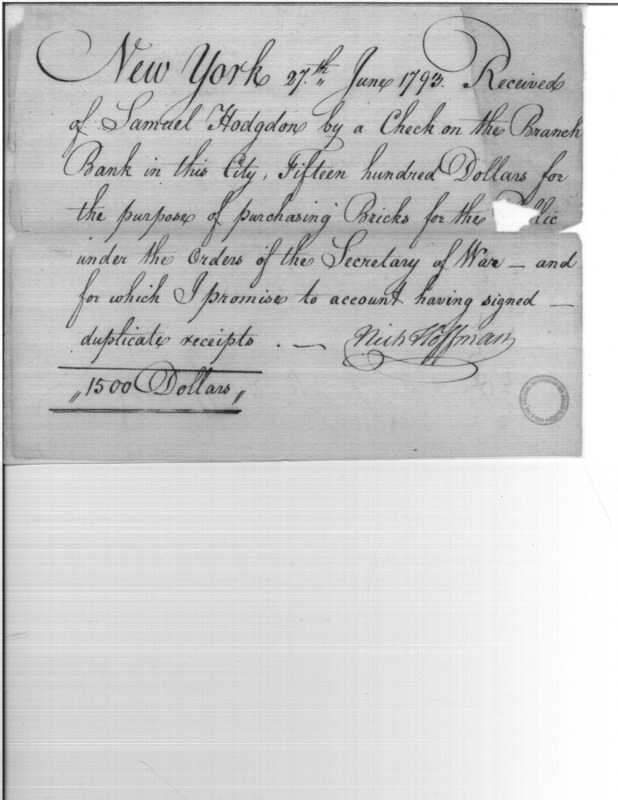 New York 27.th June 1793. Received
of Samuel Hodgdon by a Check on the Branch
Bank in this City, Fifteen hundred Dollars for
the purpose of purchasing Bricks for the Public
under the Orders of the Secretary of War — and
for which I promise to account having signed —
duplicate receipts. — Nich Hoffman
„1500 Dollars„